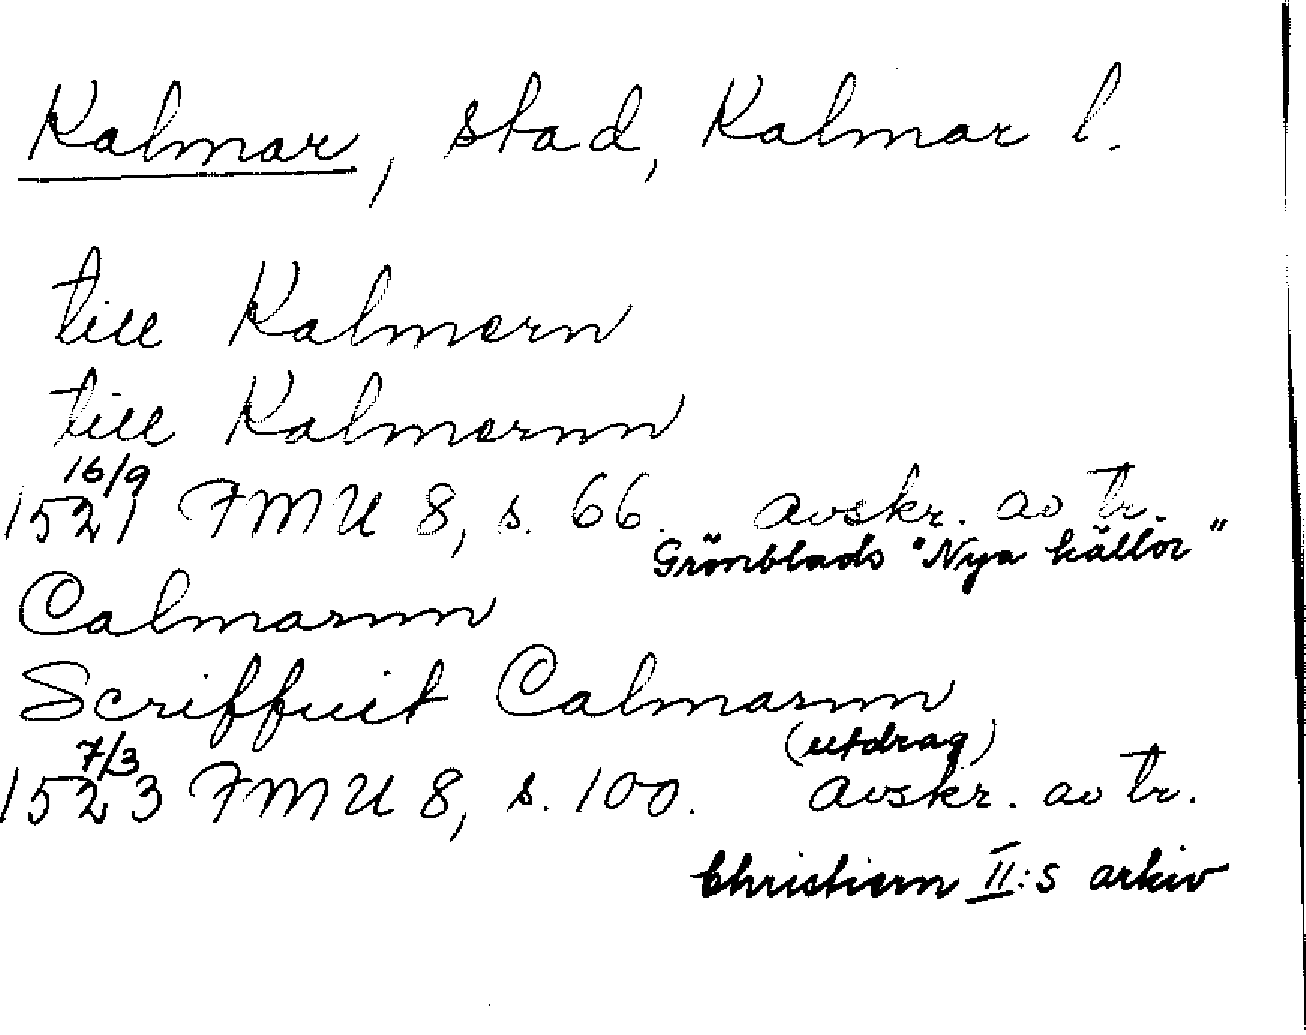 Kalmar, stad, Kalmar l.
till Kalmern
till Kalmernn
16/9
1521 FMU 8, s. 66. avskr. av tr.
Grönblads "Nya källor"
Calmarnn
Scriffuit Calmarnn
7/3 (utdrag)
1523 FMU 8, s. 100. avskr. av tr.
Christiern II:s arkiv